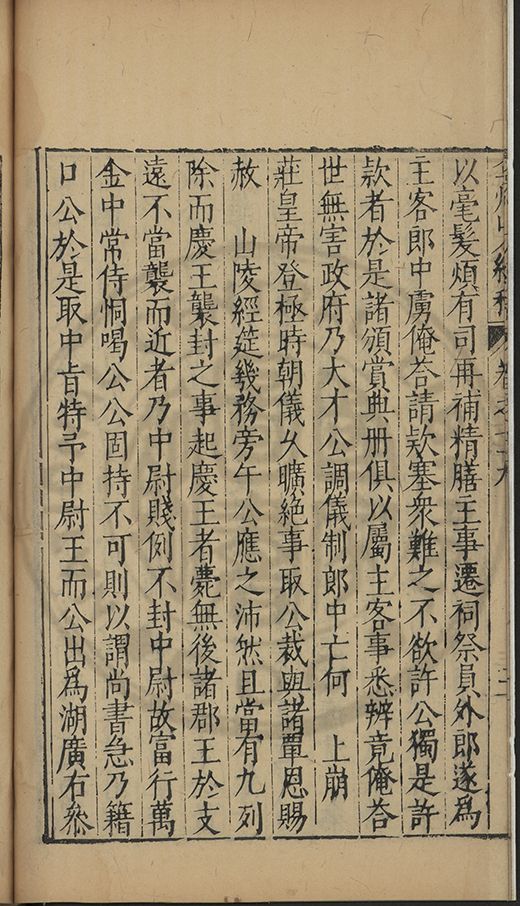 以毫髮煩有司再補精膳主事遷祠祭員外郎遂爲
主客郎中虜俺荅請款塞衆難之不欲許公獨是許
款者於是諸頒賞典册俱以屬主客事悉辨竟俺荅
世無害政府乃大才公調儀制郎中亡何　上崩
莊皇帝登極時朝儀久曠絶事取公裁與諸覃恩賜
赦　山陵經筵幾務旁午公應之沛然且當有九列
除而慶王襲封之事起慶王者薨無後諸郡王於支
遠不當襲而近者乃中尉賤例不封中尉故富行萬
金中常侍恫喝公公固持不可則以謂尚書急乃籍
口公於是取中旨特予中尉王而公出爲湖廣右叅